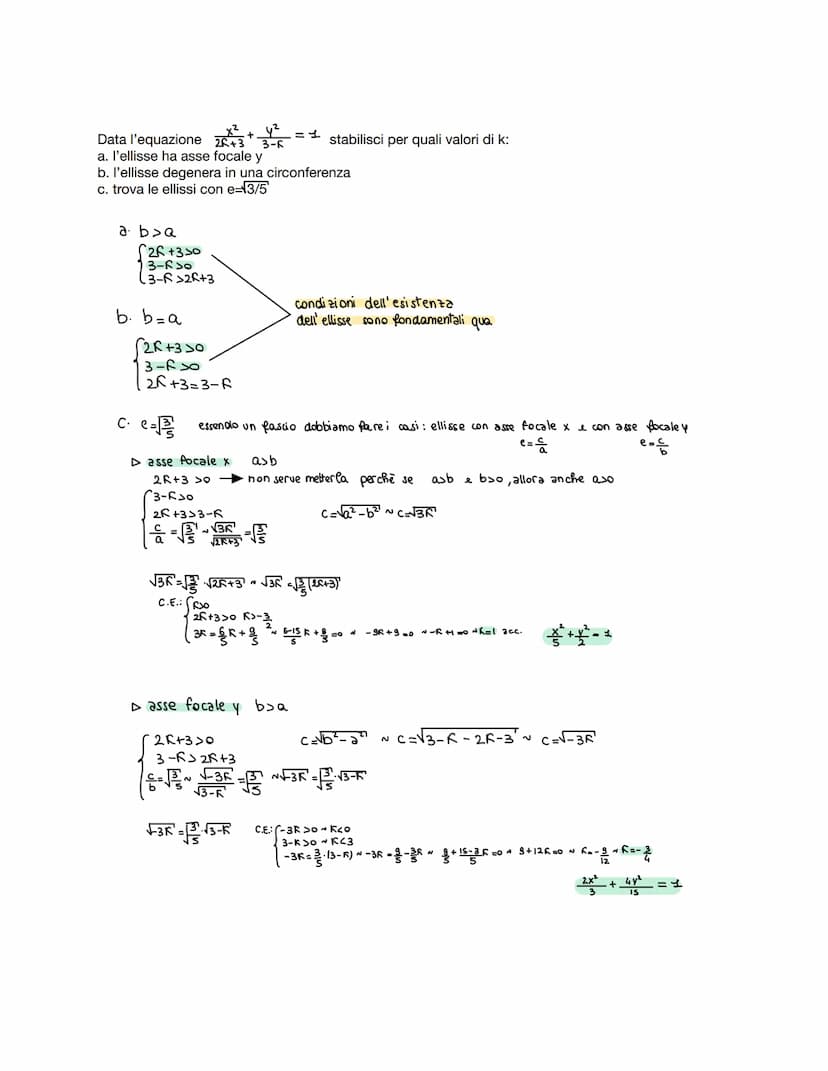 Data l'equazione x²/(2k+3) + y²/(3-k) = 1 stabilisci per quali valori di k:
a. l'ellisse ha asse focale y
b. l'ellisse degenera in una circonferenza
c. trova le ellissi con e=√3/5
a. b>a
2k+3>0
3-k>0
3-k>2k+3
condizioni dell'esistenza
dell'ellisse sono fondamentali qua
b. b=a
2k+3>0
3-k>0
2k+3=3-k
c. e=√3/5 essendo un fascio dobbiamo fare i casi: ellisse con asse focale x e con asse focale y
e=c/a e=c/b
▷ asse focale x a>b
2k+3>0 → non serve metterla perchè se a>b e b>0, allora anche a>0
3-k>0
2k+3>3-k c=√a²-b² ~ c=√3k
c/a = √3/5 ~ √3k/√2k+3 = √3/5
√3k = √3/5 · √2k+3 ~ √3k = √3/5(2k+3)
C.E.: k>0
2k+3>0 k>-3/2
3k = 6/5k + 9/5 ~ 6-15/5 k + 9/5 = 0 ~ -9k+9=0 ~ -k+1=0 ~ k=1 acc. x²/5 + y²/2 = 1
▷ asse focale y b>a
2k+3>0 c=√b²-a² ~ c=√3-k-2k-3 ~ c=√-3k
3-k>2k+3
c/b = √3/5 ~ √-3k/√3-k = √3/5 ~ √-3k = √3/5 · √3-k
√-3k = √3/5 · √3-k C.E.: -3k>0 ~ k<0
3-k>0 ~ k<3
-3k = 3/5 · (3-k) ~ -3k = 9/5 - 3k/5 ~ 9/5 + 15-3/5 k = 0 ~ 9+12k=0 ~ k=-9/12 ~ k=-3/4
2x²/3 + 4y²/15 = 1